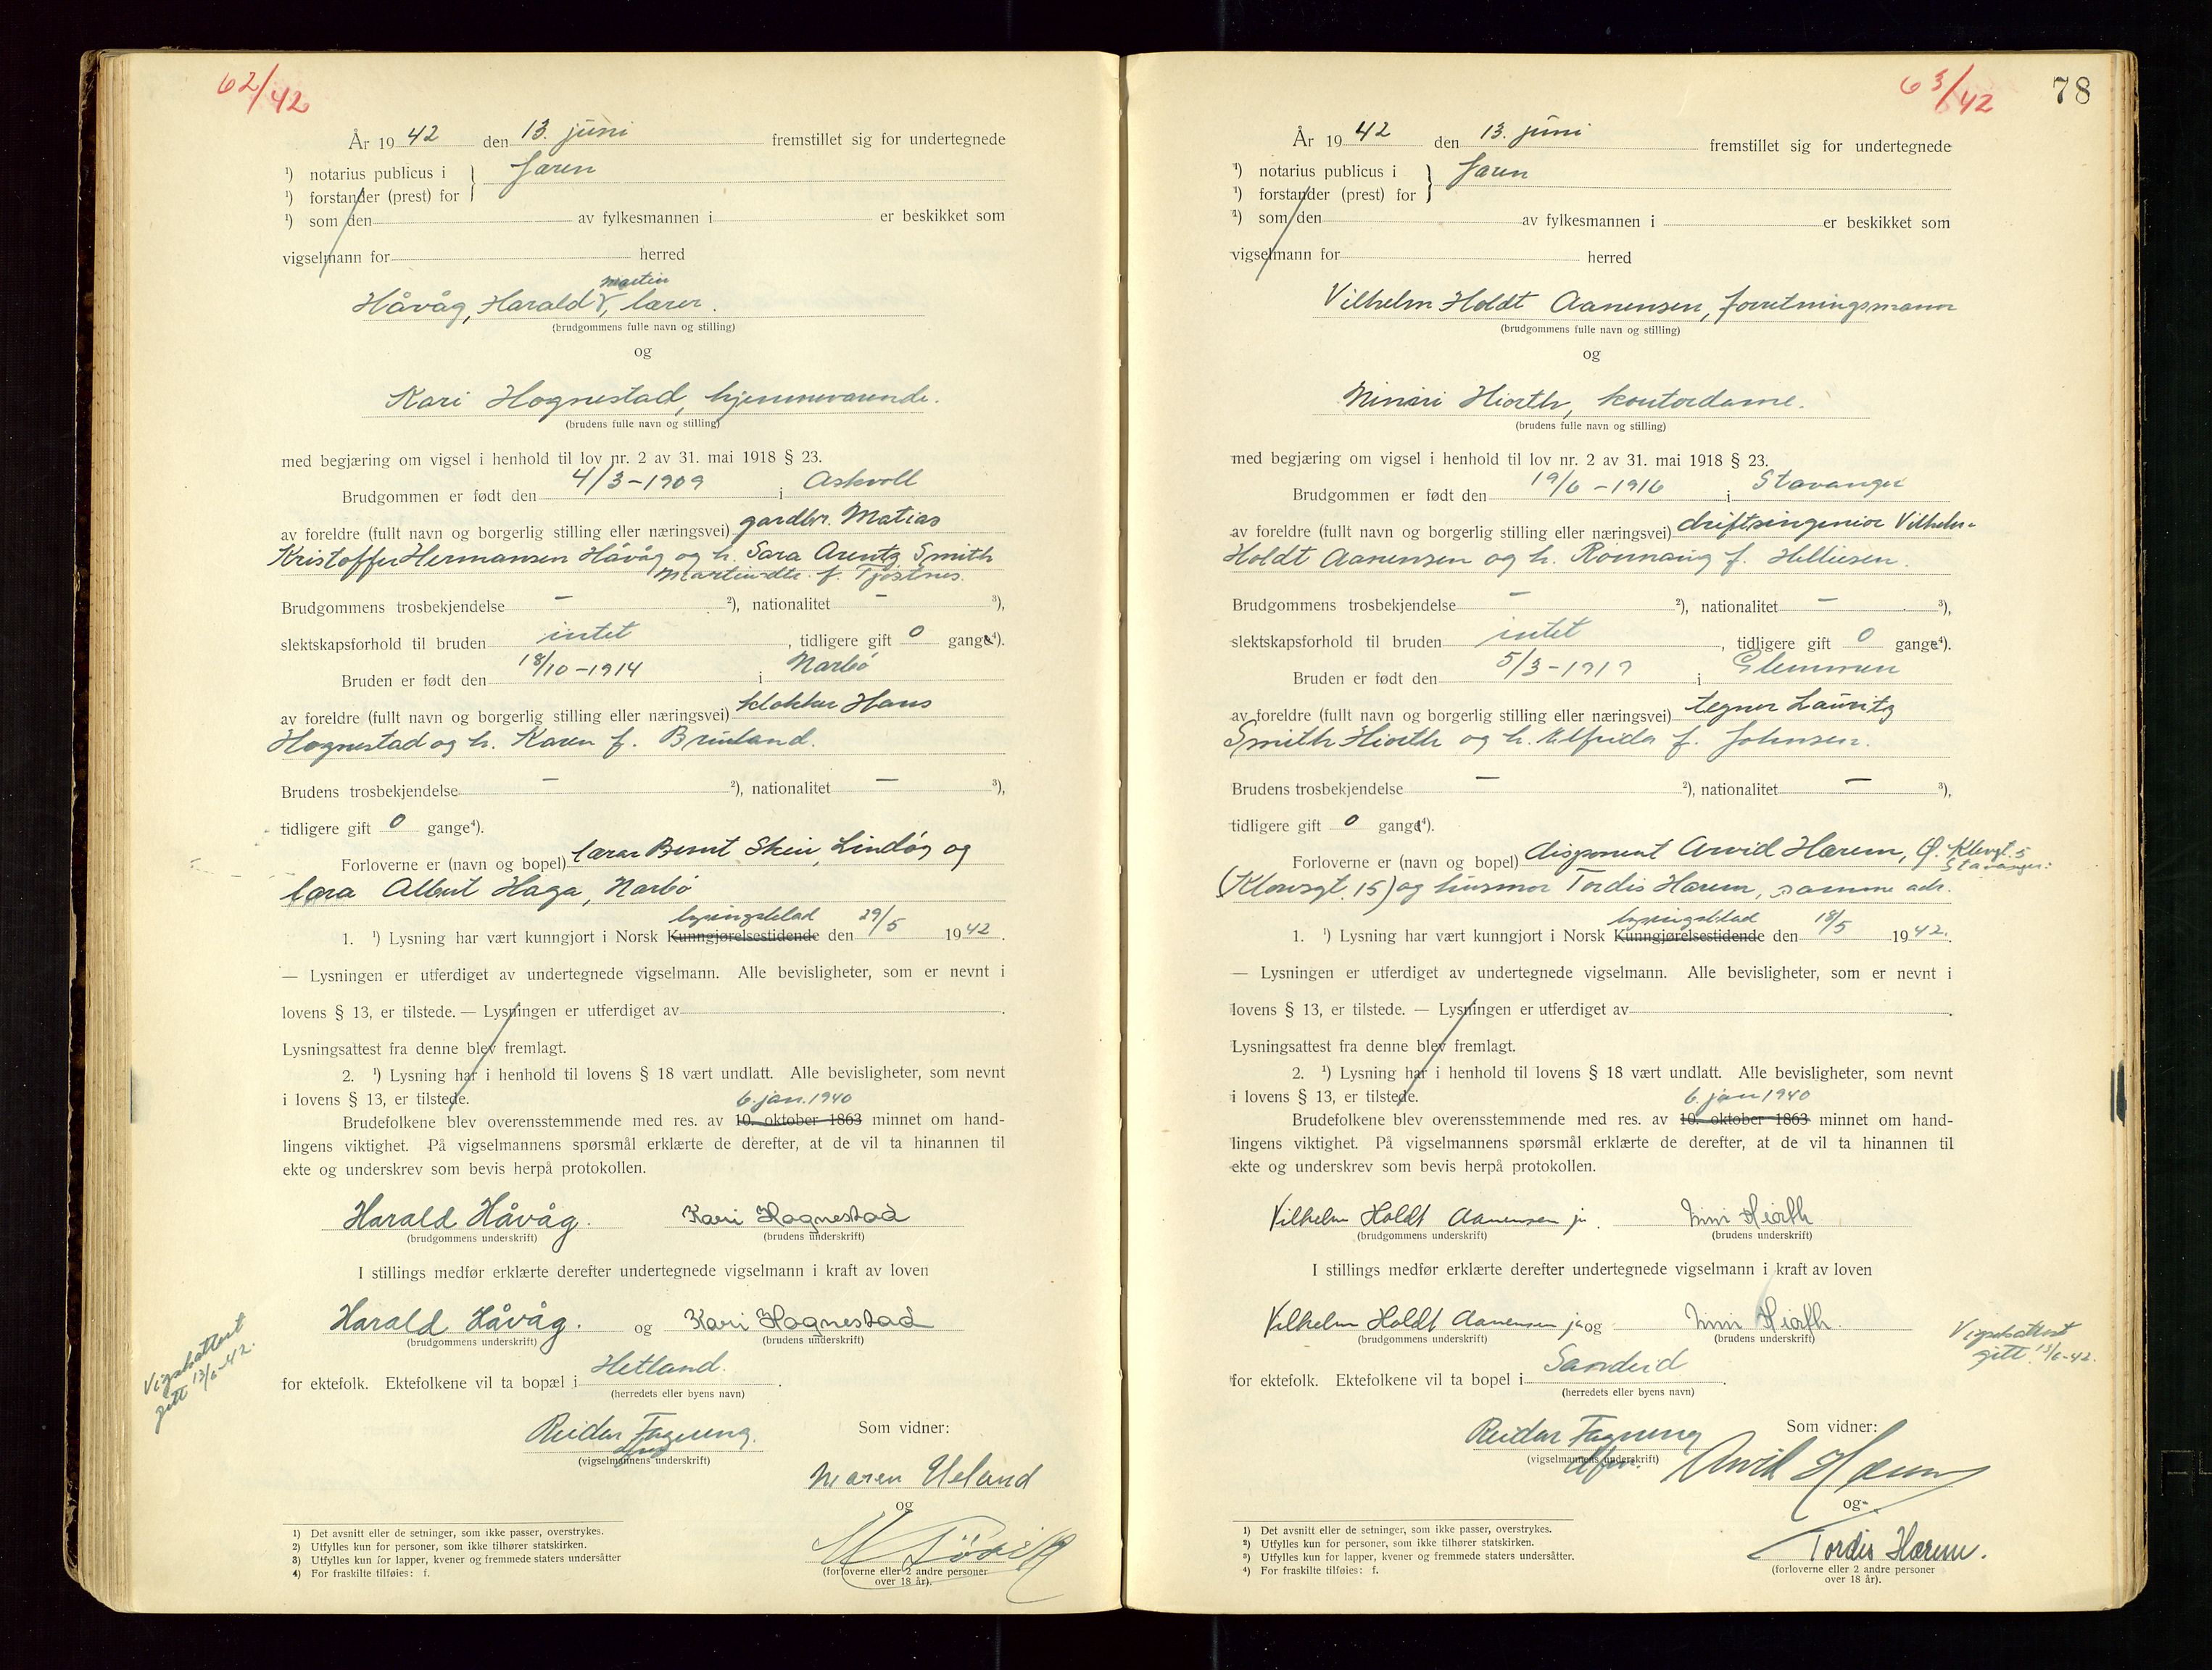 62/42
År 19 42 den 13. juni fremstillet sig for undertegnede
¹) notarius publicus i } Jæren
¹) forstander (prest) for
¹) som den av fylkesmannen i er beskikket som
vigselmann for herred
Martin
Håvåg, Harald , lærer.
(brudgommens fulle navn og stilling)
og
Kari Hognestad, hjemmeværende.
(brudens fulle navn og stilling)
med begjæring om vigsel i henhold til lov nr. 2 av 31. mai 1918 § 23.
Brudgommen er født den 4/3-1909 i Askvoll
av foreldre (fullt navn og borgerlig stilling eller næringsvei) gardbr. Matias
Kristoffer Hermansen Håvåg og h. Sara Arentz Smith
Martinsdtr. f. Tjøstnes.
Brudgommens trosbekjendelse — ²), nationalitet — ³),
slektskapsforhold til bruden intet, tidligere gift 0 gange⁴).
Bruden er født den 18/10-1914 i Nærbø
av foreldre (fullt navn og borgerlig stilling eller næringsvei) klokker Hans
Hognestad og h. Karen f. Brueland.
Brudens trosbekjendelse — ²), nationalitet — ³),
tidligere gift 0 gange⁴).
Forloverne er (navn og bopel) lærer Bernt Skeie, Lindøy og
lærer Albert Haga, Nærbø
lysingsblad
1. ¹) Lysning har vært kunngjort i Norsk Kunngjørelsestidende den 29/5 1942.
— Lysningen er utferdiget av undertegnede vigselmann. Alle bevisligheter, som er nevnt i
lovens § 13, er tilstede. — Lysningen er utferdiget av .
Lysningsattest fra denne blev fremlagt.
2. ¹) Lysning har i henhold til lovens § 18 vært undlatt. Alle bevisligheter, som nevnt
i lovens § 13, er tilstede.
6. jan. 1940
Brudefolkene blev overensstemmende med res. av 10. oktober 1863 minnet om hand-
lingens viktighet. På vigselmannens spørsmål erklærte de derefter, at de vil ta hinannen til
ekte og underskrev som bevis herpå protokollen.
Harald Håvåg. Kari Hognestad
(brudgommens underskrift) (brudens underskrift)
I stillings medfør erklærte derefter undertegnede vigselmann i kraft av loven
Harald Håvåg. og Kari Hognestad
(brudgommens underskrift) (brudens underskrift)
Vigselsattest
gitt 13/6-42.
for ektefolk. Ektefolkene vil ta bopæl i Hetland.
(herredets eller byens navn)
Reidar Fagning. Som vidner:
(vigselmannens underskrift)
Maren Ueland
og
(forloverne eller 2 andre personer
over 18 år).
1) Det avsnitt eller de setninger, som ikke passer, overstrykes.
2) Utfylles kun for personer, som ikke tilhører statskirken.
3) Utfylles kun for lapper, kvener og fremmede staters undersåtter
4) For fraskilte tilføies: f.
63/42 78
År 19 42 den 13. juni fremstillet sig for undertegnede
¹) notarius publicus i } Jæren
¹) forstander (prest) for
¹) som den av fylkesmannen i er beskikket som
vigselmann for herred
Vilhelm Holdt Aanensen, forretningsmann
(brudgommens fulle navn og stilling)
og
Hiorth, kontordame.
(brudens fulle navn og stilling)
med begjæring om vigsel i henhold til lov nr. 2 av 31. mai 1918 § 23.
Brudgommen er født den 19/6-1916 i Stavanger
av foreldre (fullt navn og borgerlig stilling eller næringsvei) driftsingeniør Vilhelm
Holdt Aanensen og h. Rønnaug f. Helliesen.
Brudgommens trosbekjendelse — ²), nationalitet — ³),
slektskapsforhold til bruden intet, tidligere gift 0 gange⁴).
Bruden er født den 5/3-1919 i Glemmen
av foreldre (fullt navn og borgerlig stilling eller næringsvei) tegner Lauritz
Smith Hiorth og h. Elfrida f. Johnsen.
Brudens trosbekjendelse — ²), nationalitet — ³),
tidligere gift 0 gange⁴).
Forloverne er (navn og bopel) disponent Arvid Hærem, Ø. Klevgt. 5
Stavanger.
(Klowsgt. 15) og husmor Tordis Hærem, samme adr.
lysingsblad
1. ¹) Lysning har vært kunngjort i Norsk Kunngjørelsestidende den 18/5 1942.
— Lysningen er utferdiget av undertegnede vigselmann. Alle bevisligheter, som er nevnt i
lovens § 13, er tilstede. — Lysningen er utferdiget av .
Lysningsattest fra denne blev fremlagt.
2. ¹) Lysning har i henhold til lovens § 18 vært undlatt. Alle bevisligheter, som nevnt
i lovens § 13, er tilstede.
6. jan 1940
Brudefolkene blev overensstemmende med res. av 10. oktober 1863 minnet om hand-
lingens viktighet. På vigselmannens spørsmål erklærte de derefter, at de vil ta hinannen til
ekte og underskrev som bevis herpå protokollen.
Vilhelm Holdt Aanensen jr. Nini Hiorth
(brudgommens underskrift) (brudens underskrift)
I stillings medfør erklærte derefter undertegnede vigselmann i kraft av loven
Vilhelm Holdt Aanensen jr og Nini Hiorth.
(brudgommens underskrift) (brudens underskrift)
Vigselsattest
gitt 13/6-42.
for ektefolk. Ektefolkene vil ta bopel i Sandeid.
(herredets eller byens navn)
Reidar Fagning Som vidner:
(vigselmannens underskrift) Arvid Hærem
og
Tordis Hærem.
(forloverne eller 2 andre personer
over 18 år).
1) Det avsnitt eller de setninger, som ikke passer, overstrykes.
²) Utfylles kun for personer, som ikke tilhører statskirken.
³) Utfylles kun for lapper, kvener og fremmede staters undersåtter.
⁴) For fraskilte tilføies: f.